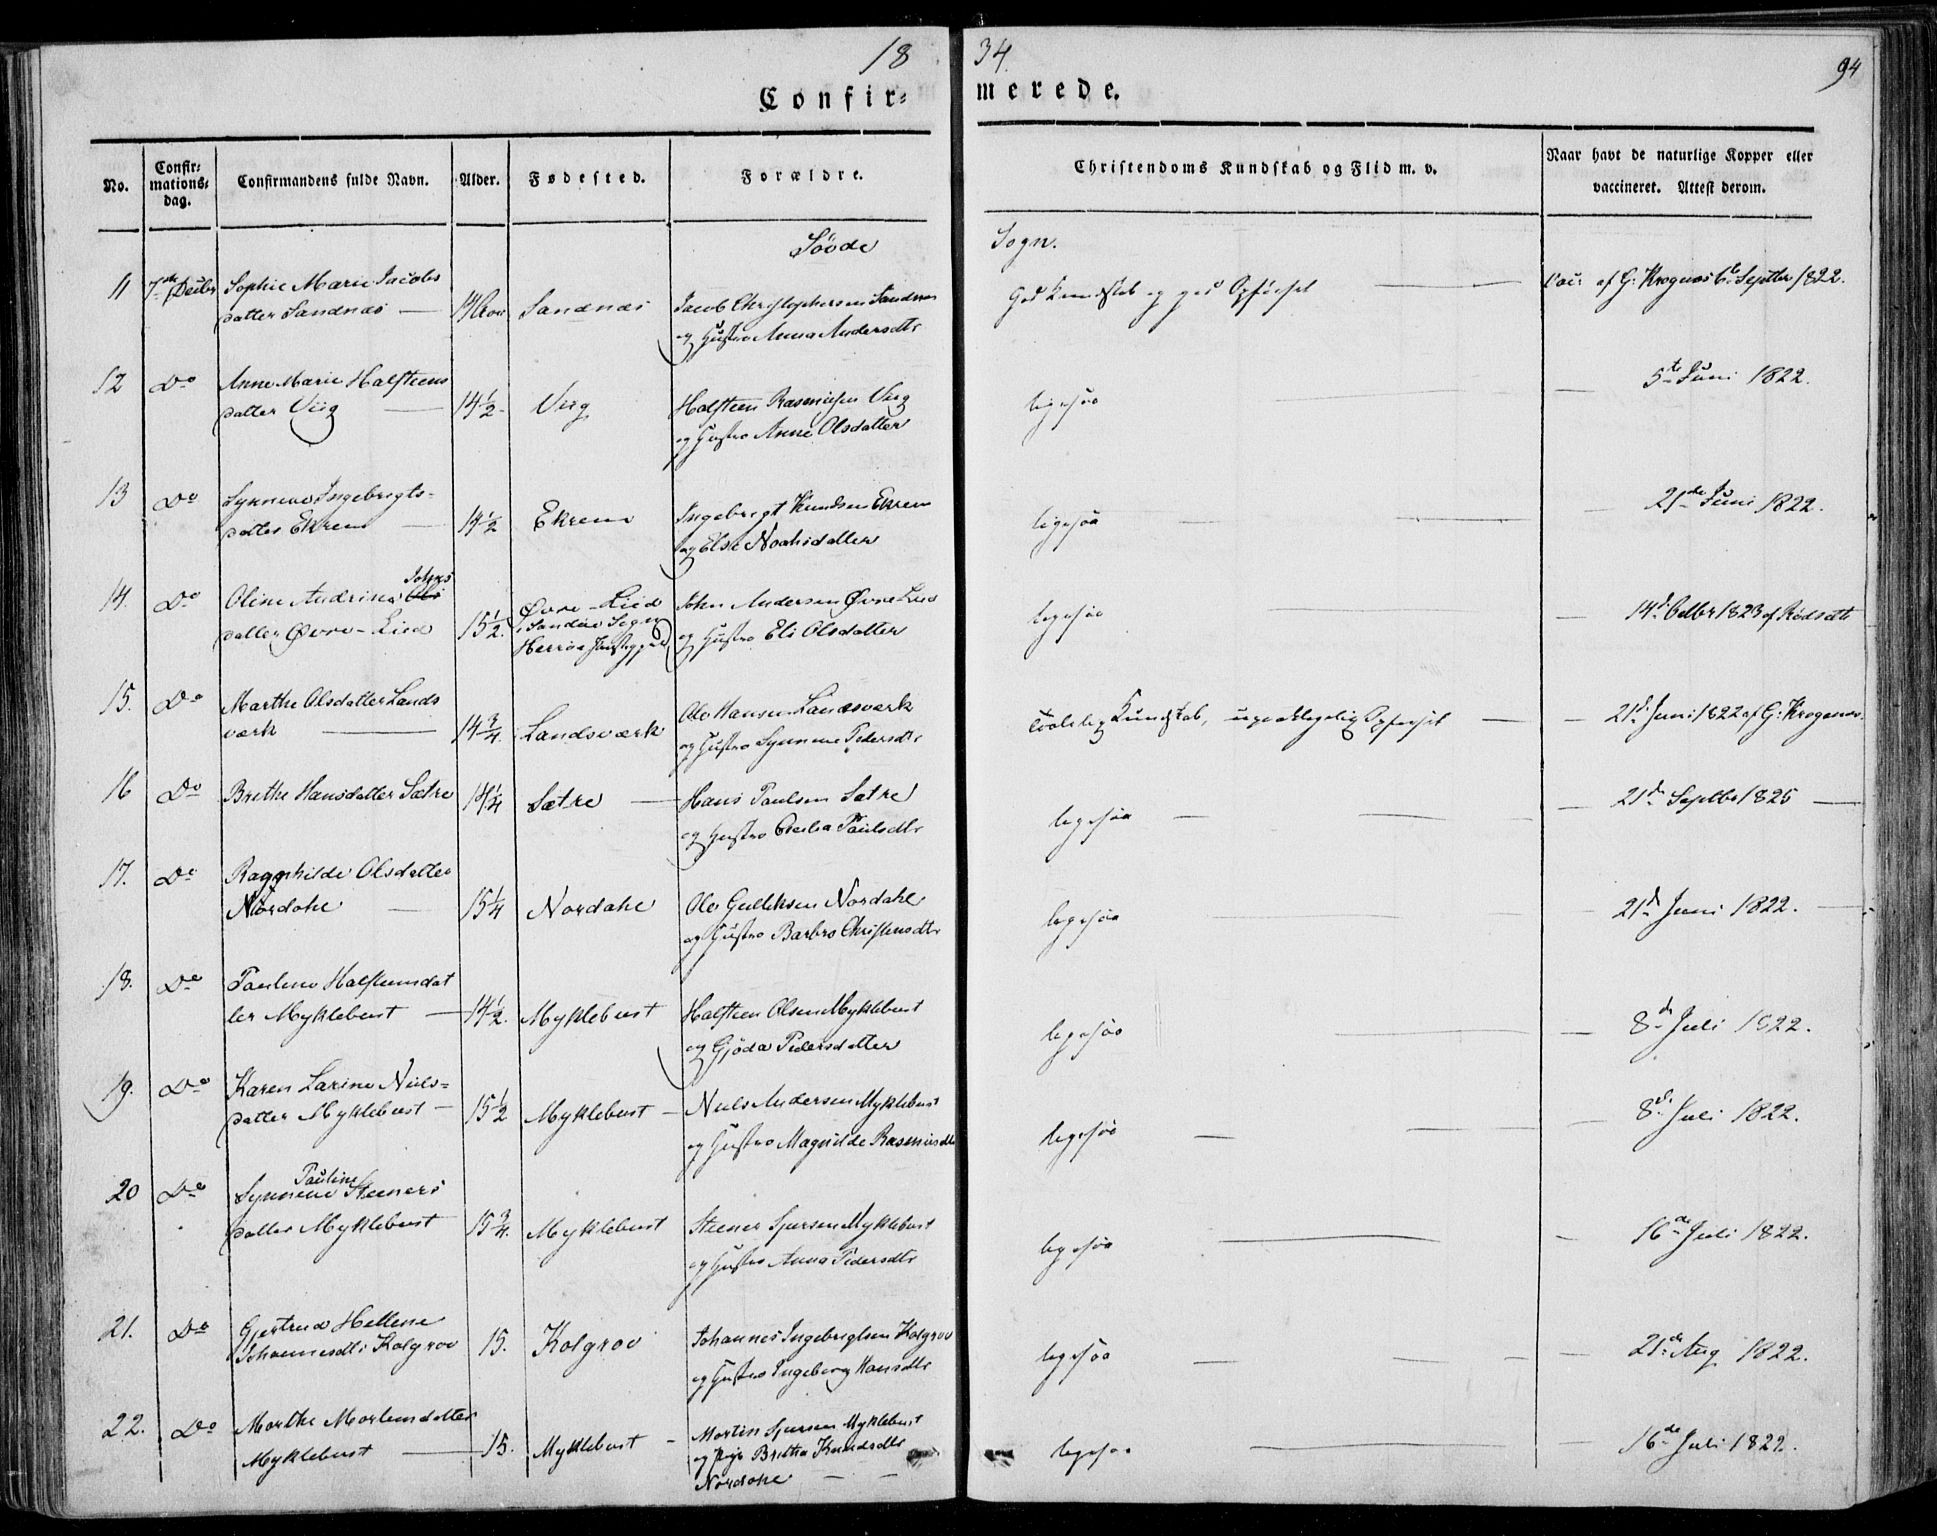 18 34.
94
Confir= merede.
No.
Confir=
mations=
dag.
Confirmandens fulde Navn.
Alder.
Fødested.
Forældre.
Christendoms Kundskab og Flid m. v.
Naar havt de naturlige Kopper eller
vaccineret. Attest derom.
Søvde Sogn.
11 7de Decbr Sophie Marie Jacobs
datter Sandnæs — 14 Sandnæs
Jacob Christophersen Sandnæs
og Hustro Anna Andersdtr
God Kundskab og god Opførsel — Vac: af G: Krognæs 6te Septbr 1822.
12 Do Anne Marie Halfsteens
datter Viig — 14½ Viig
Halfsteen Rasmusen Viig
og Hustro Anne Olsdatter
ligesaa — 5te Juni 1822.
13 Do Synneve Ingebrigts=
datter Ekrem — 14½ Ekrem
Ingebrigt Knudsen Ekrem
og Else Noahsdatter
ligesaa — 21de Juni 1822.
14. Do Oline Andrine Johns Ols
datter Øvre-Lied 15½. Øvre-Lied
i Sandøe Sogn
Herröe Præstegjeld
John Andersen Øvre Lied
og Hustro Eli Olsdatter
ligesaa — 14d Octbr 1823 af Rødsæth
15. Do Marthe Olsdatter Lands
værk — 14¾. Landsværk
Ole Hansen Landsværk
og Hustro Synneve Pedersdtr
Taalelig Kundskab, upaaklagelig Opførsel — 21d Juni 1822 af G: Krognæs
16 Do Brithe Hansdatter Sætre 14¼ Sætre —
Hans Paulsen Sætre
og Hustro Cecilia Paulsdtr
ligesaa — 21de Septbr 1825 —
17. Do Ragnhilde Olsdatter
Nordahl — 15¼ Nordahl
Ole Gulliksen Nordahl
og Hustro Barbro Christensdtr
ligesaa — 21d Juni 1822. —
18. Do Pauline Halfsteensdat
ter Myklebust — 14½. Myklebust
Halfsteen Olsen Myklebust
og Gjøda Pedersdatter
ligesaa — 8d Juli 1822.
19. Do Karen Larine Niels=
datter Myklebust — 15½ Myklebust —
Niels Andersen Myklebust
og Hustro Magnilde Rasmusdtr
ligesaa — 8d Juli 1822.
20 Do Synneve Pauline Steeners
datter Myklebust 15¾. Myklebust
Steener Sjursen Myklebust
og Hustro Anna Pedersdtr
ligesaa — 16de Juli 1822.
21. Do Gjertrud Hellene
Johannesdtr Kolgrov 15. Kolgrov
Johannes Ingebrigtsen Kolgrov
og Hustro Ingeborg Hansdtr
ligesaa — 21de Aug 1822.
22. Do Marthe Mortensdatter
Myklebust — 15. Myklebust —
Morten Sjursen Myklebust
og Pige Brithe Knudsdtr
Nordahl — —
ligesaa — 16de Juli 1822.